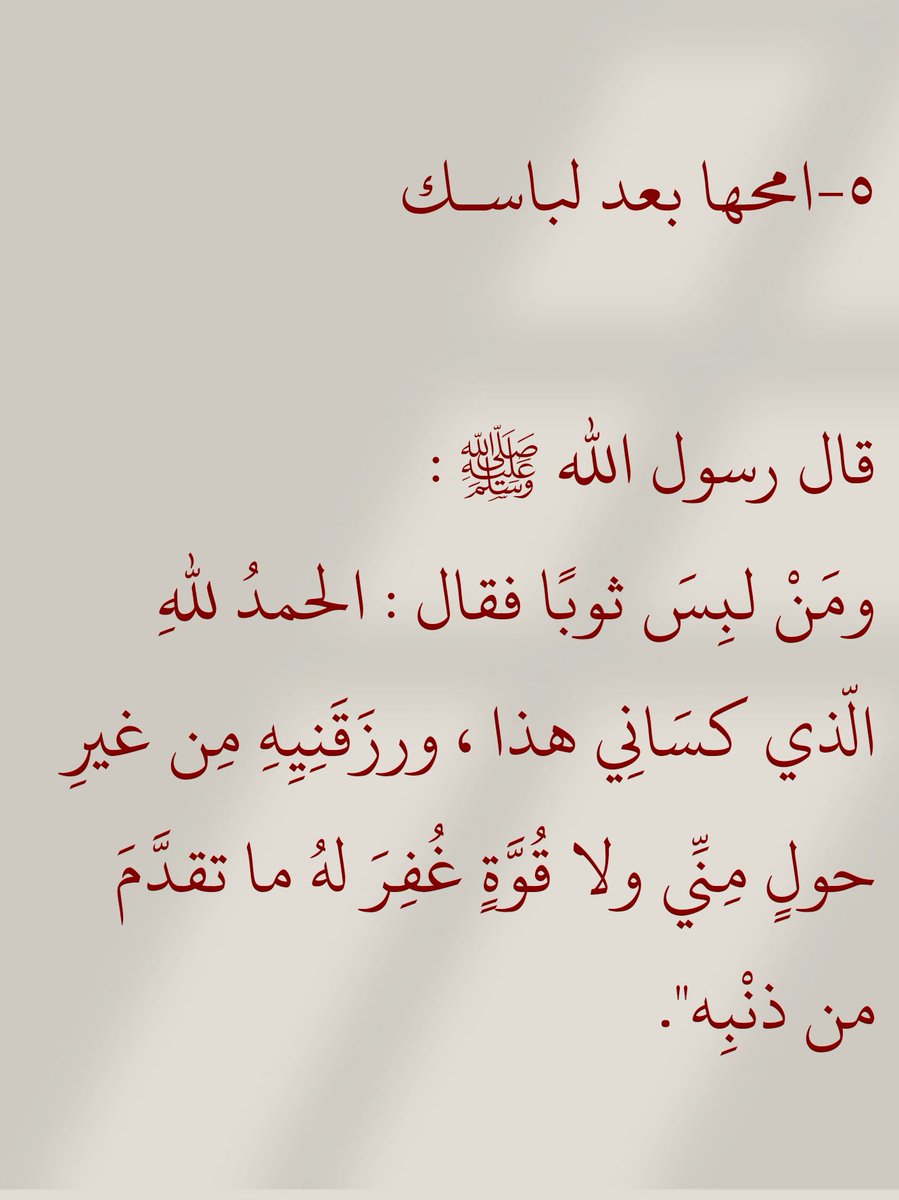 ٥-امحها بعد لباســك
قال رسول الله ﷺ :
ومَنْ لبِسَ ثوبًا فقال : الحمدُ للهِ
الّذي كسَانِي هذا ، ورزَقَنِيِهِ مِن غيرِ
حولٍ مِنِّي ولا قُوَّةٍ غُفِرَ لهُ ما تقدَّمَ
من ذنْبِه".